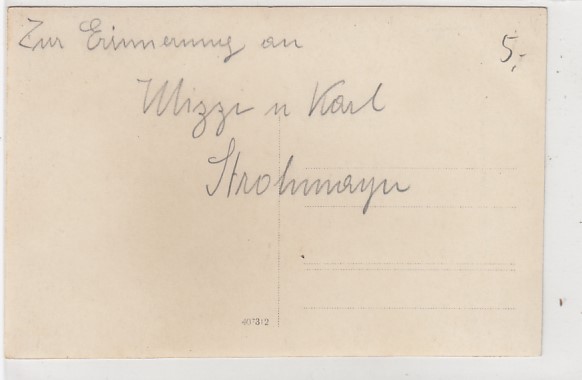 Zur Erinnerung an
5,-
Mizzi u Karl
Strohmayer
407312